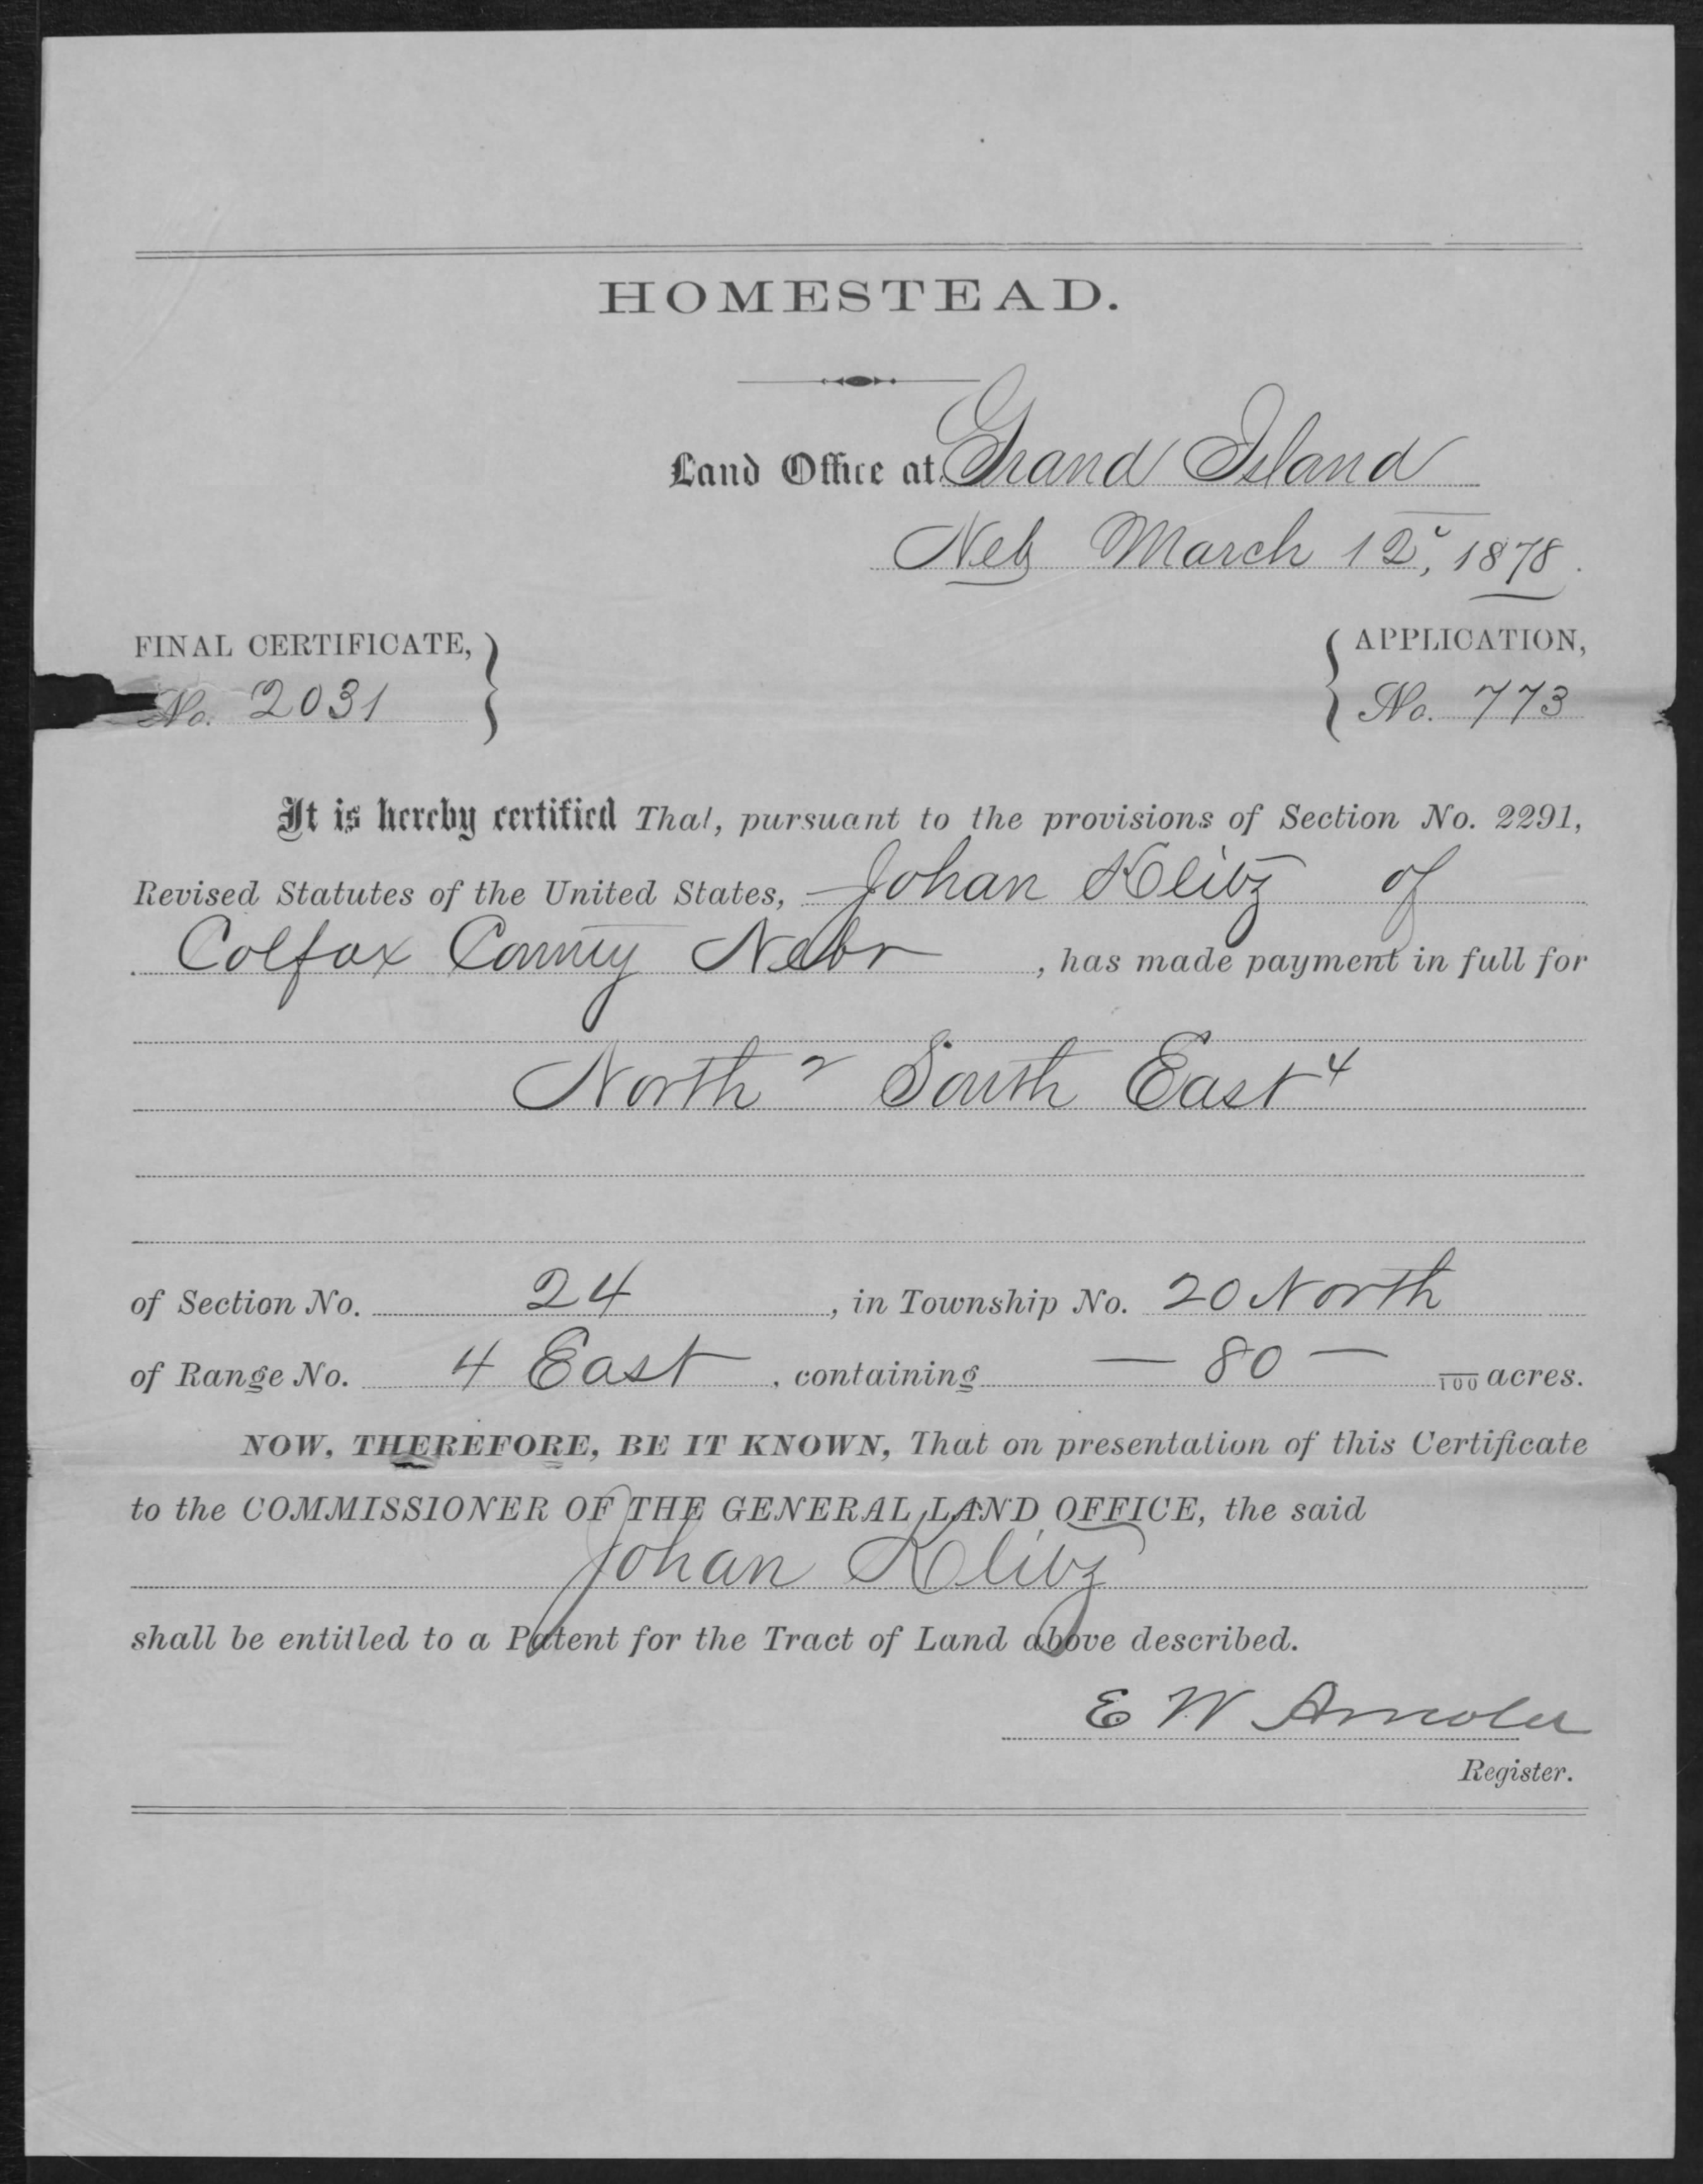 HOMESTEAD.
Land Office at Grand Island
Neb March 12, 1878.
FINAL CERTIFICATE, APPLICATION,
No. 2031 No. 773
It is hereby certified That, pursuant to the provisions of Section No. 2291,
Revised Statutes of the United States, Johan Klitz of
Colfax County Nebr, has made payment in full for
North 2 South East 4
of Section No. 24, in Township No. 20 North
of Range No. 4 East, containing — 80 — /100 acres.
NOW, THEREFORE, BE IT KNOWN, That on presentation of this Certificate
to the COMMISSIONER OF THE GENERAL LAND OFFICE, the said
Johan Klitz
shall be entitled to a Patent for the Tract of Land above described.
E W Arnold
Register.